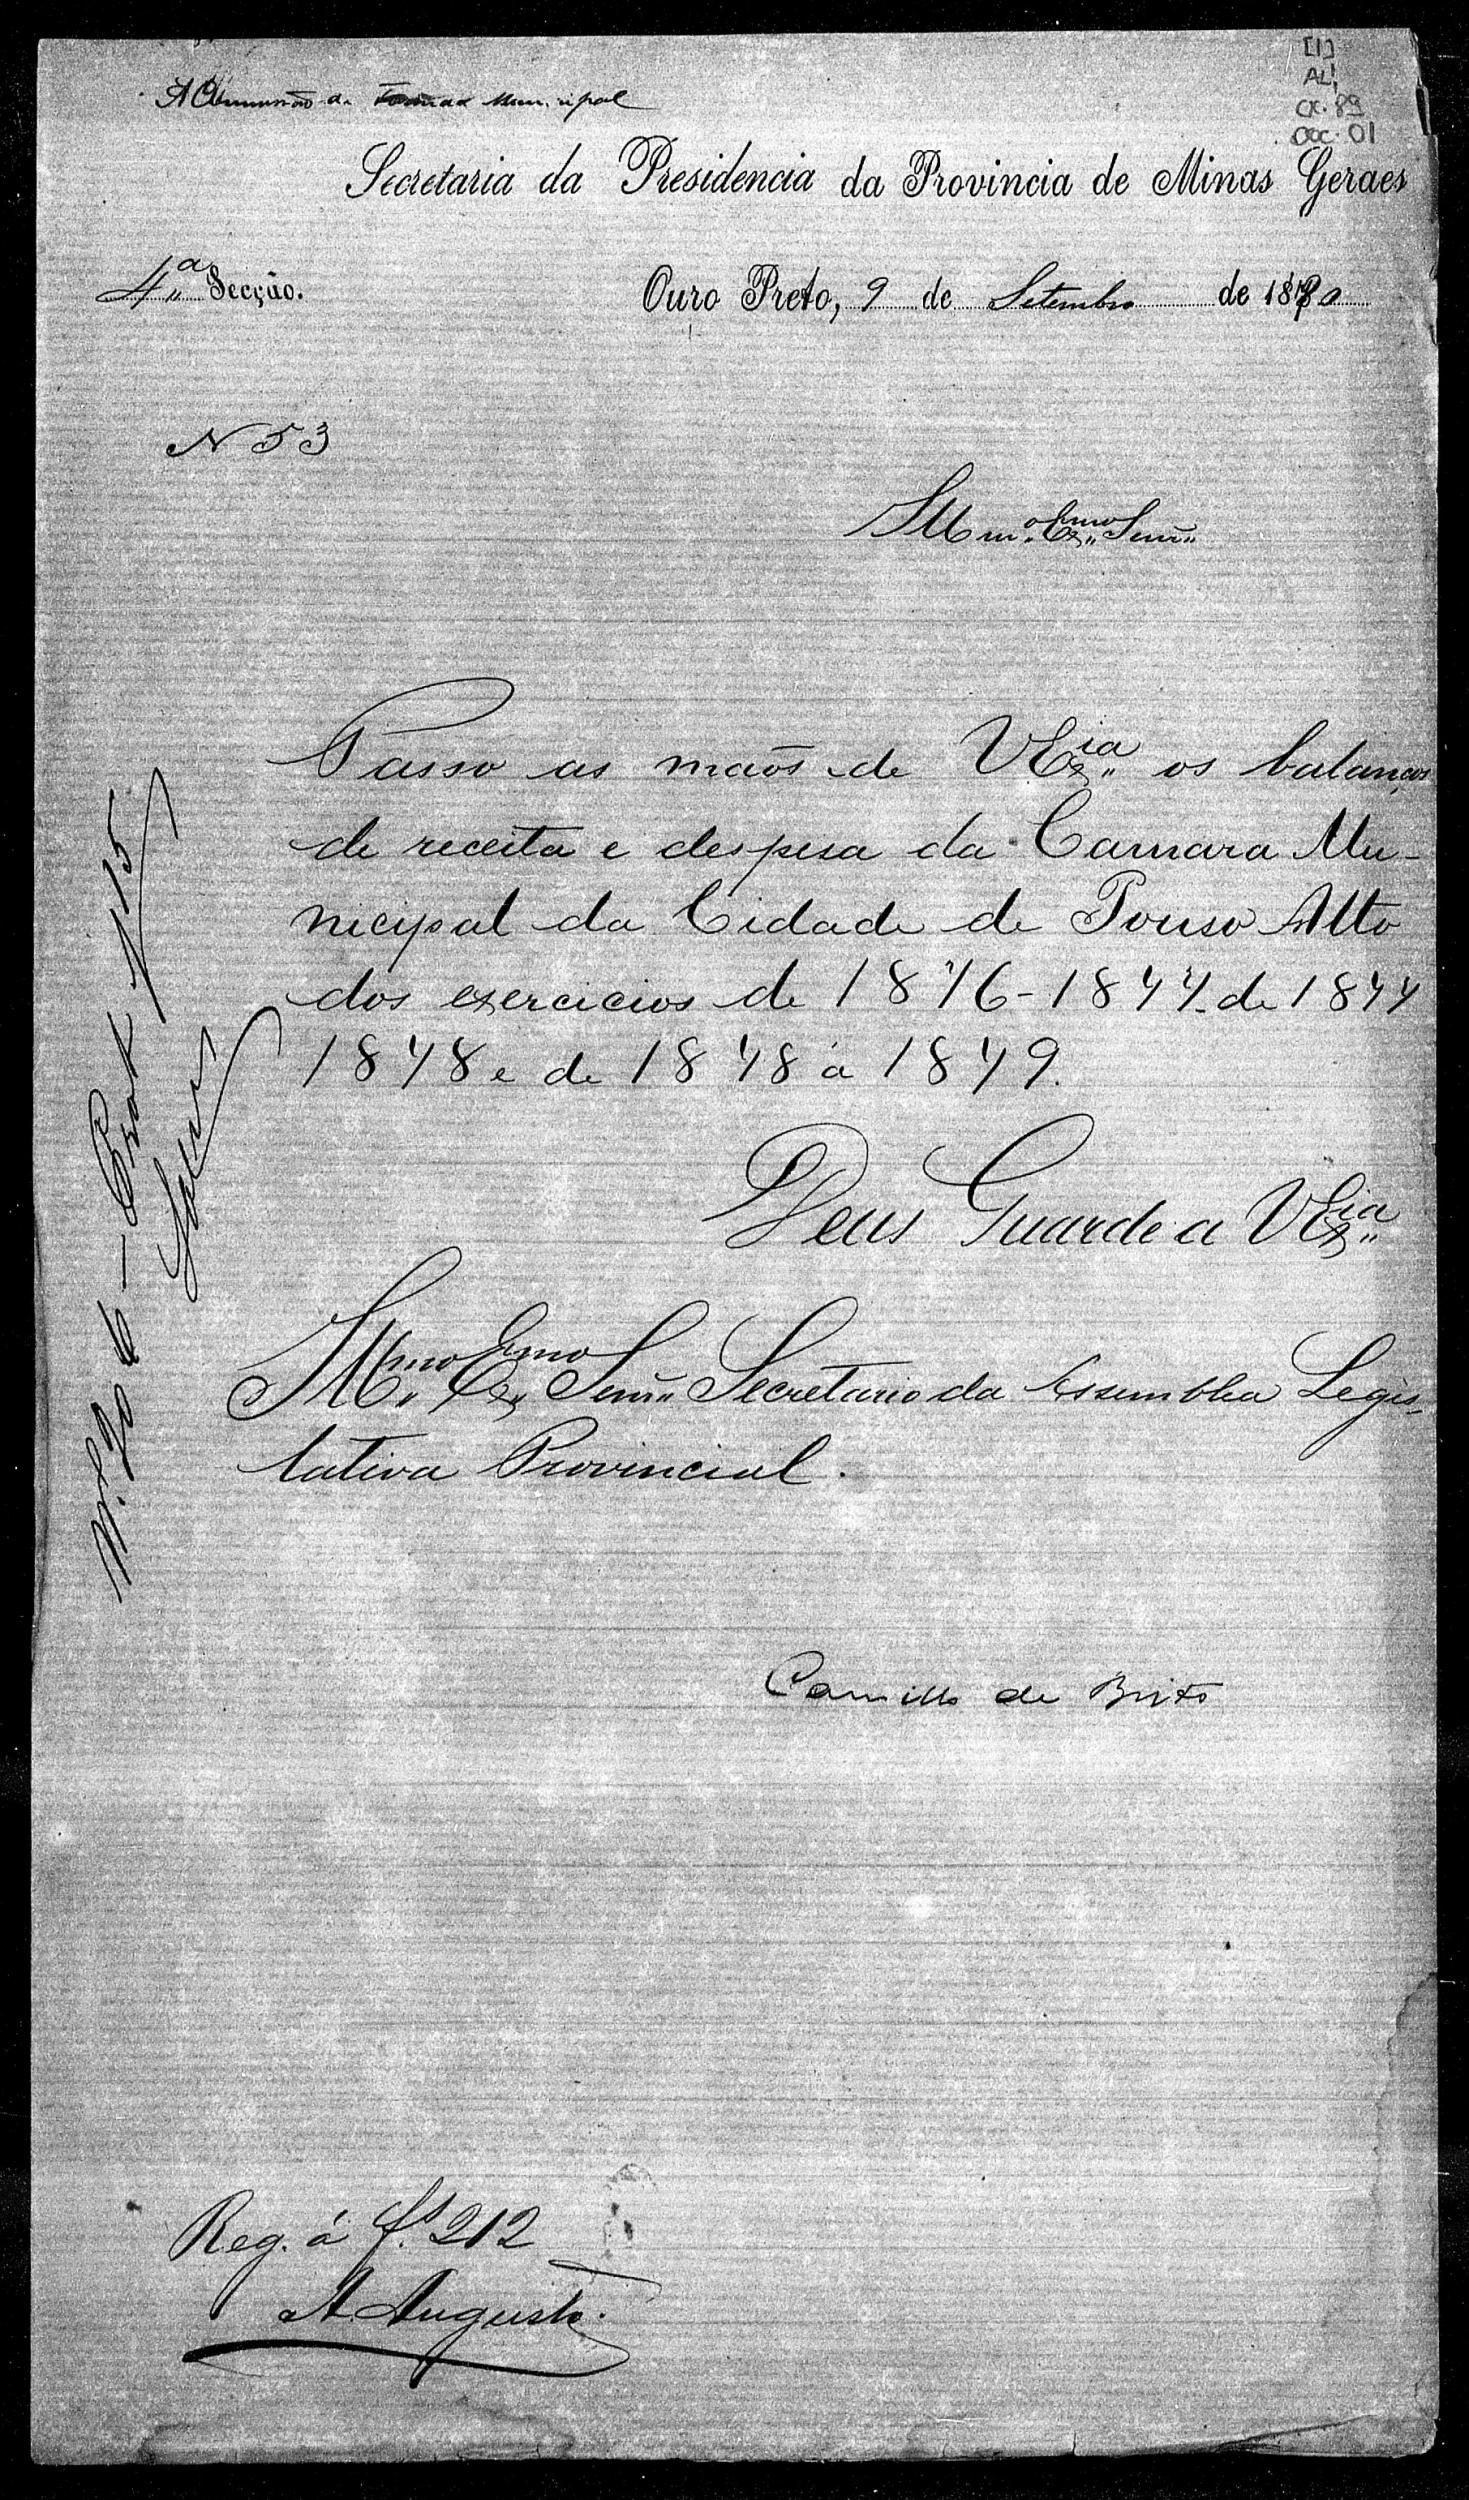 [1]
AL!
cx. 89
doc. 01
A Commissão de Municipal
Secretaria da Presidencia da Provincia de Minas Geraes
4ª Secção. Ouro Preto, 9 de Setembro de 1880
N 53
Illmº Exmo Senr
Passo as mãos de VExia os balanços
de receita e despesa da Camara Mu-
nicipal da Cidade de Pouso Alto
dos exercicios de 1876-1877 de 1877
1878 e de 1878 á 1879.
Deus Guarde a VExia
Illmo Exmo Senr Secretario da Assemblea Legis-
lativa Provincial.
Camillo de Brito
Reg. á f. 212
A. Augusto.